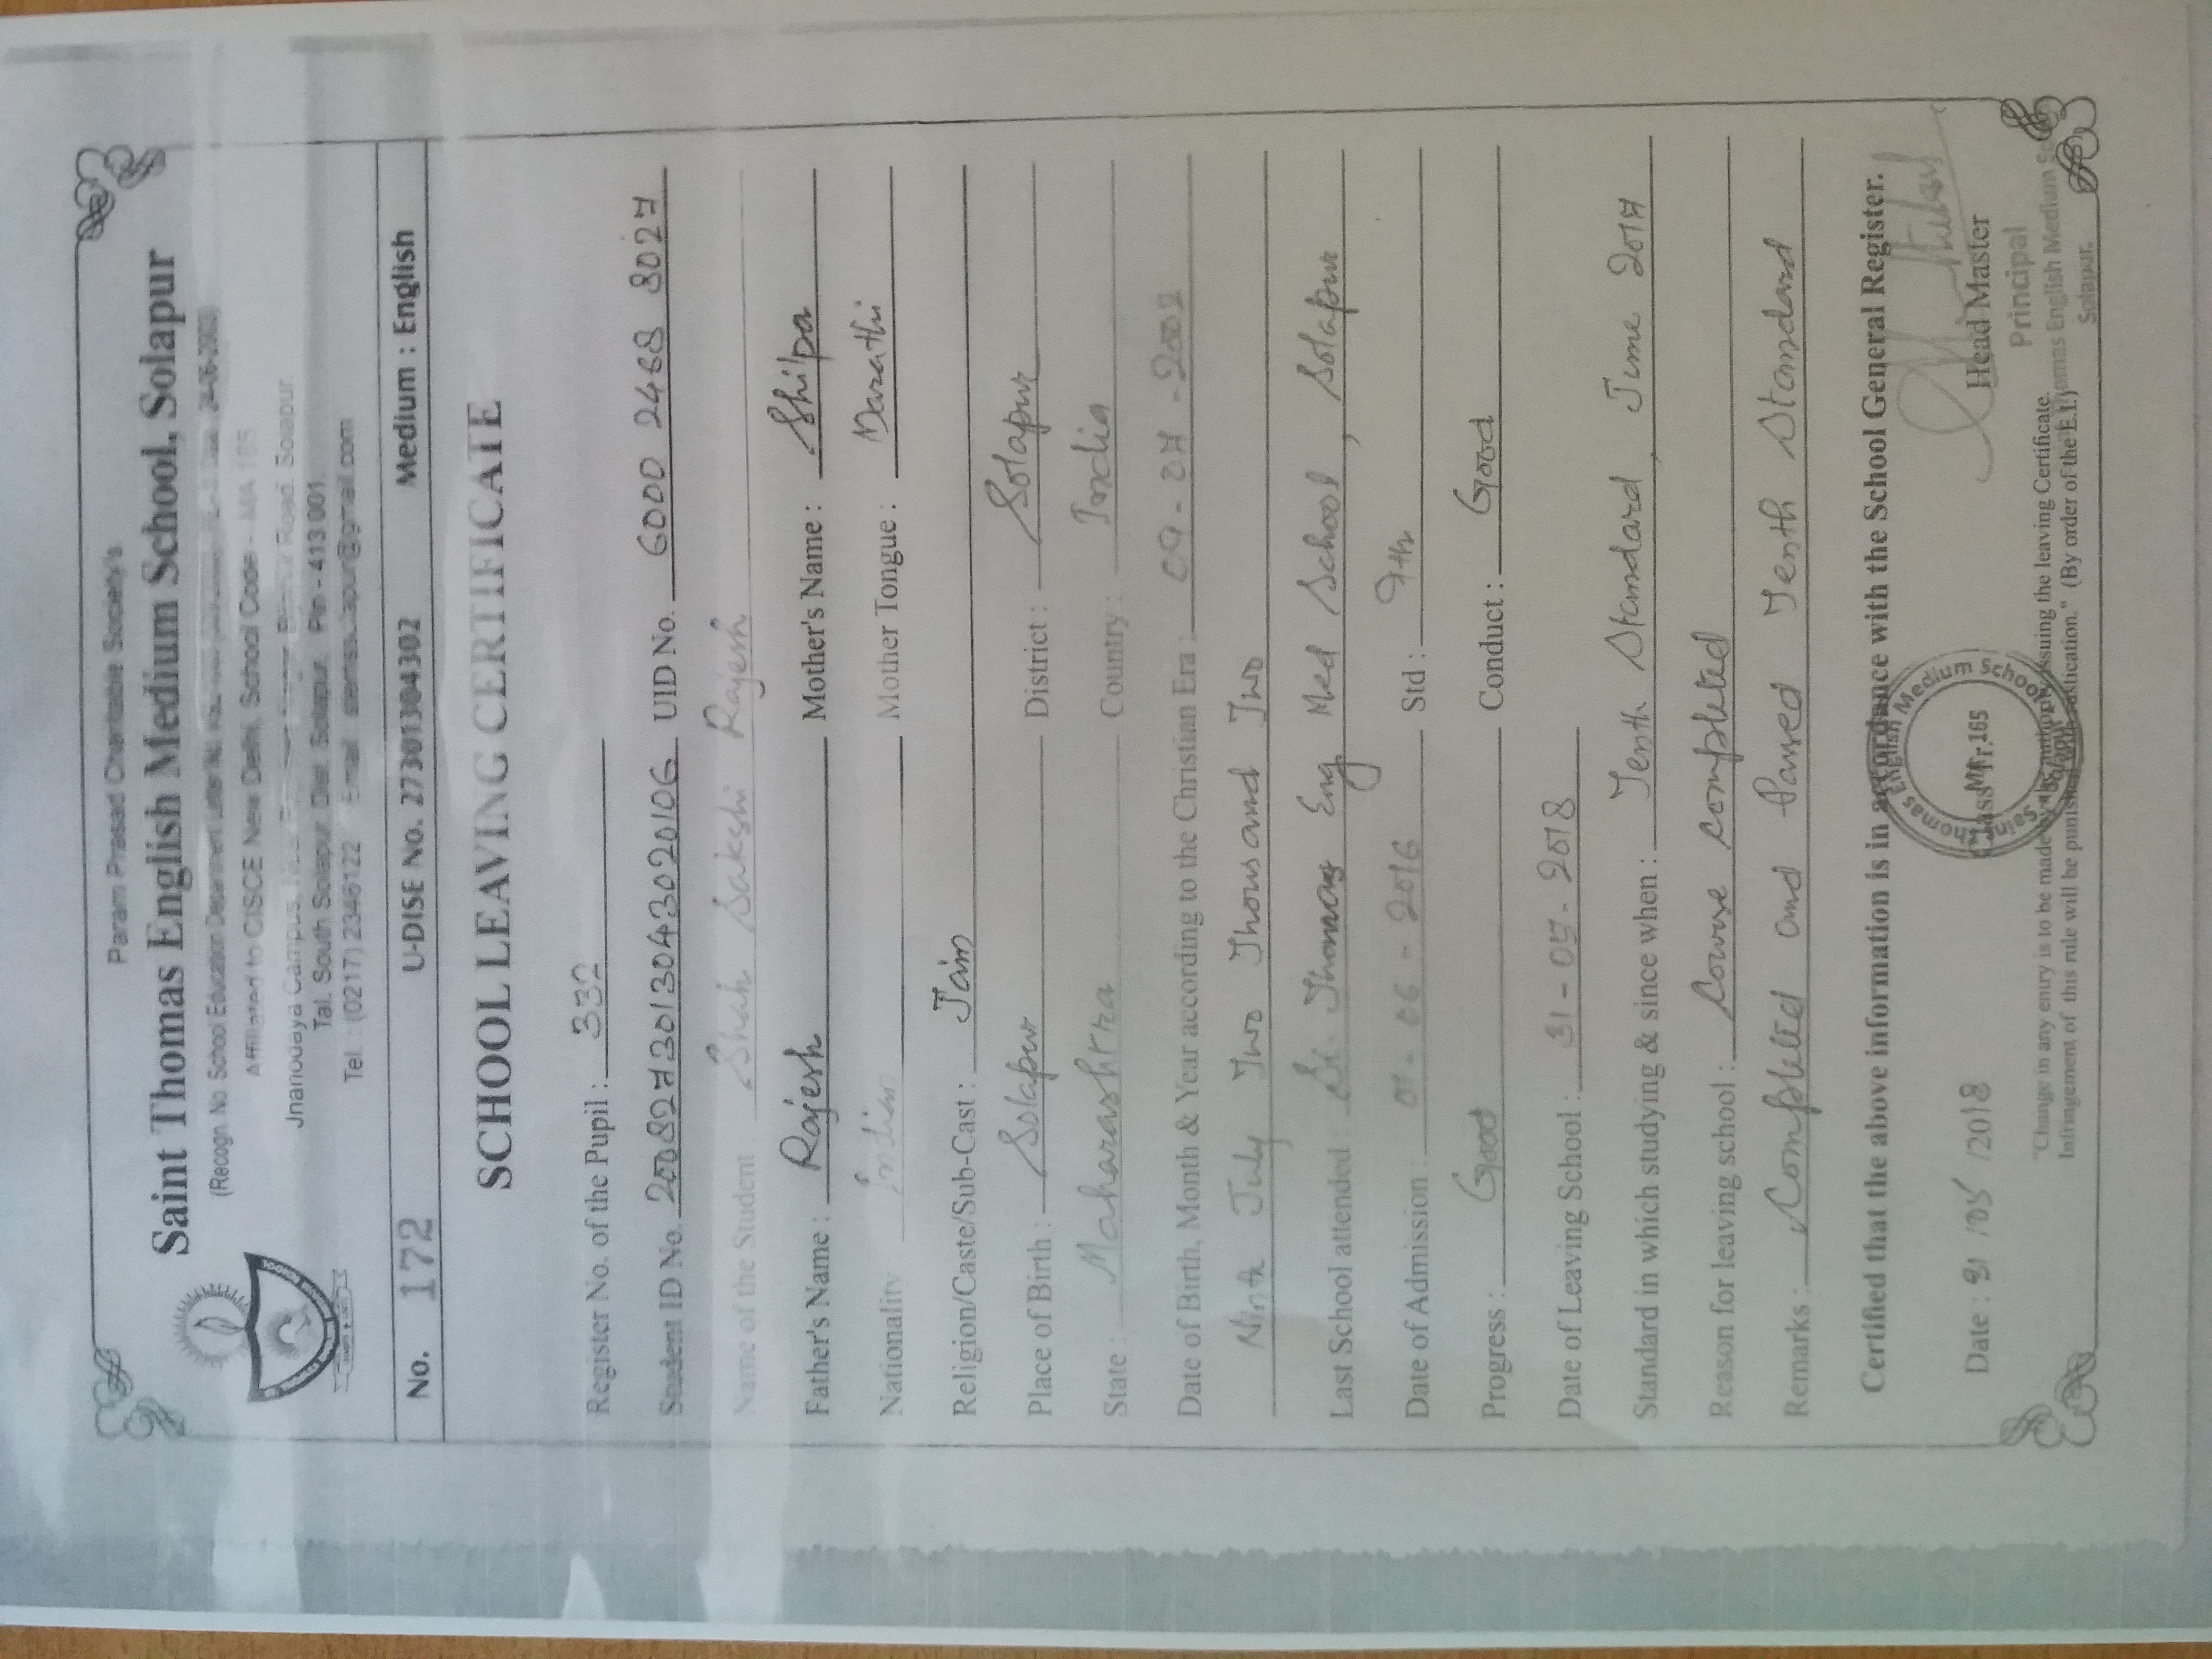 Param Prasad Charitable Society's
Saint Thomas English Medium School, Solapur
(Recogn. No. School Education Department
Affiliated to CISCE New Delhi. School Code - MA 165
Jnanodaya Campus, Road, Solapur
Tal. South Solapur, Dist. Solapur. Pin - 413 001.
Tel. : (0217) 2346122 Email
No. 172 U-DISE No. 27301304302 Medium : English
SCHOOL LEAVING CERTIFICATE
Register No. of the Pupil : 332
Student ID No. 2008273013043020106 UID No. 6000 2468 8027
Name of the Student : Shah Sakshi Rajesh
Father's Name : Rajesh Mother's Name : Shilpa
Nationality Indian Mother Tongue : Marathi
Religion/Caste/Sub-Cast : Jain
Place of Birth : Solapur District : Solapur
State : Maharashtra Country : India
Date of Birth, Month & Year according to the Christian Era : 09-07-2002
Ninth July Two Thousand Two
Last School attended : St. Thomas Eng Med School, Solapur
Date of Admission : 01-06-2016 Std : 9th
Progress : Good Conduct : Good
Date of Leaving School : 31-05-2018
Standard in which studying & since when : Tenth Standard, June 2017
Reason for leaving school : Course completed
Remarks : Completed and Passed Tenth Standard
Certified that the above information is in accordance with the School General Register.
Saint Thomas English Medium School
MA 165
Date : 31/05/2018 Head Master
Principal
Thomas English Medium
Solapur.
"Change in any entry is to be made issuing the leaving Certificate.
Infringement of this rule will be punished with rustication." (By order of the E.I.)